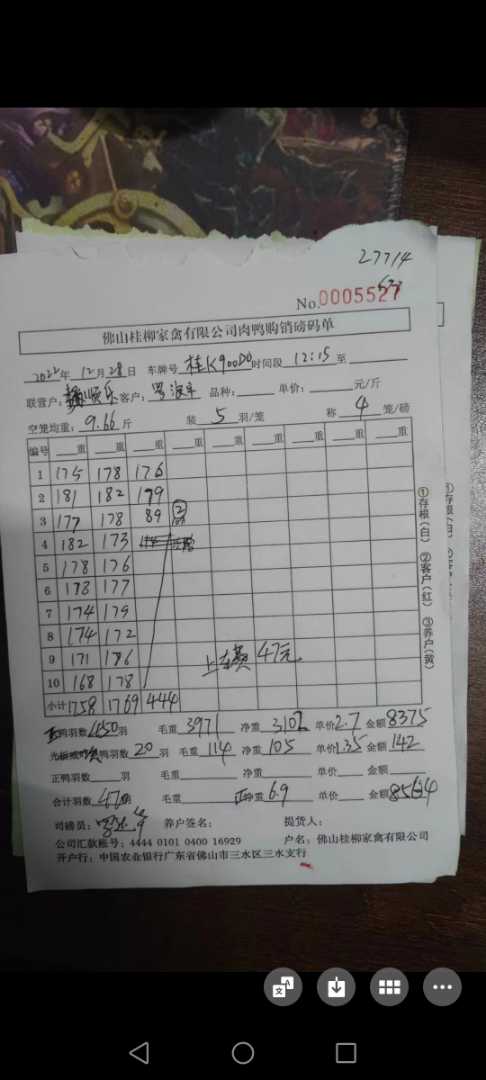 27714
No.0005527
佛山桂柳家禽有限公司肉鸭购销磅码单
2022年 12月28日 车牌号 桂K900D0 时间段 12:15 至
联营户: 客户: 品种: 单价: 元/斤
空笼均重: 9.66 斤 装 5 羽/笼 称 4 笼/磅
编号 重 重 重 重 重 重 重 重 重
1 175 178 176
2 181 182 179
3 177 178 89 2
4 182 173
5 178 176
6 178 177
7 174 179
8 174 172
9 171 176
10 168 178
上车费 47元
小计 1758 1769 444
正鸭羽数 450 羽 毛重 3971 净重 3102 单价 2.7 金额 8375
鸭羽数 20 羽 毛重 114 净重 105 单价 1.35 金额 142
正鸭羽数 羽 毛重 净重 单价 金额
合计羽数 470 羽 毛重 正净重 6.9 单价 金额 8564
司磅员: 养户签名: 提货人:
公司汇款帐号: 4444 0101 0400 16929 户名: 佛山桂柳家禽有限公司
开户行: 中国农业银行广东省佛山市三水区三水支行
①存根(白) ②客户(红) ③养户(黄)